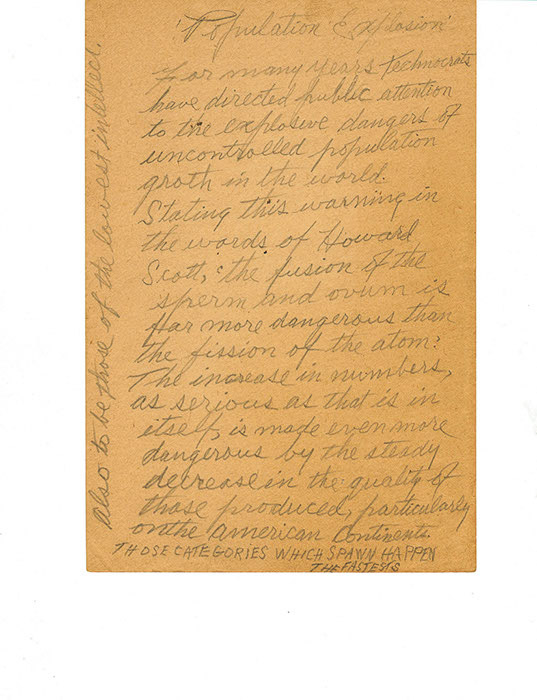 'Population Explosion'
For many years Technocrats
have directed public attention
to the explosive dangers of
uncontrolled population
groth in the world.
Stating this warning in
the words of Howard
Scott, "the fusion of the
sperm and ovum is
far more dangerous than
the fission of the atom."
The increase in numbers,
as serious as that is in
itself, is made even more
dangerous by the steady
decrease in the quality of
those produced, particularly
on the American Continents.
THOSE CATEGORIES WHICH SPAWN HAPPEN
THE FASTESTS
also to be those of the lowest intellect.